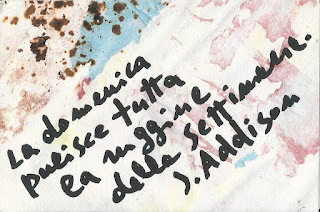 La domenica
pulisce tutta
la ruggine
della settimana.
J. Addison